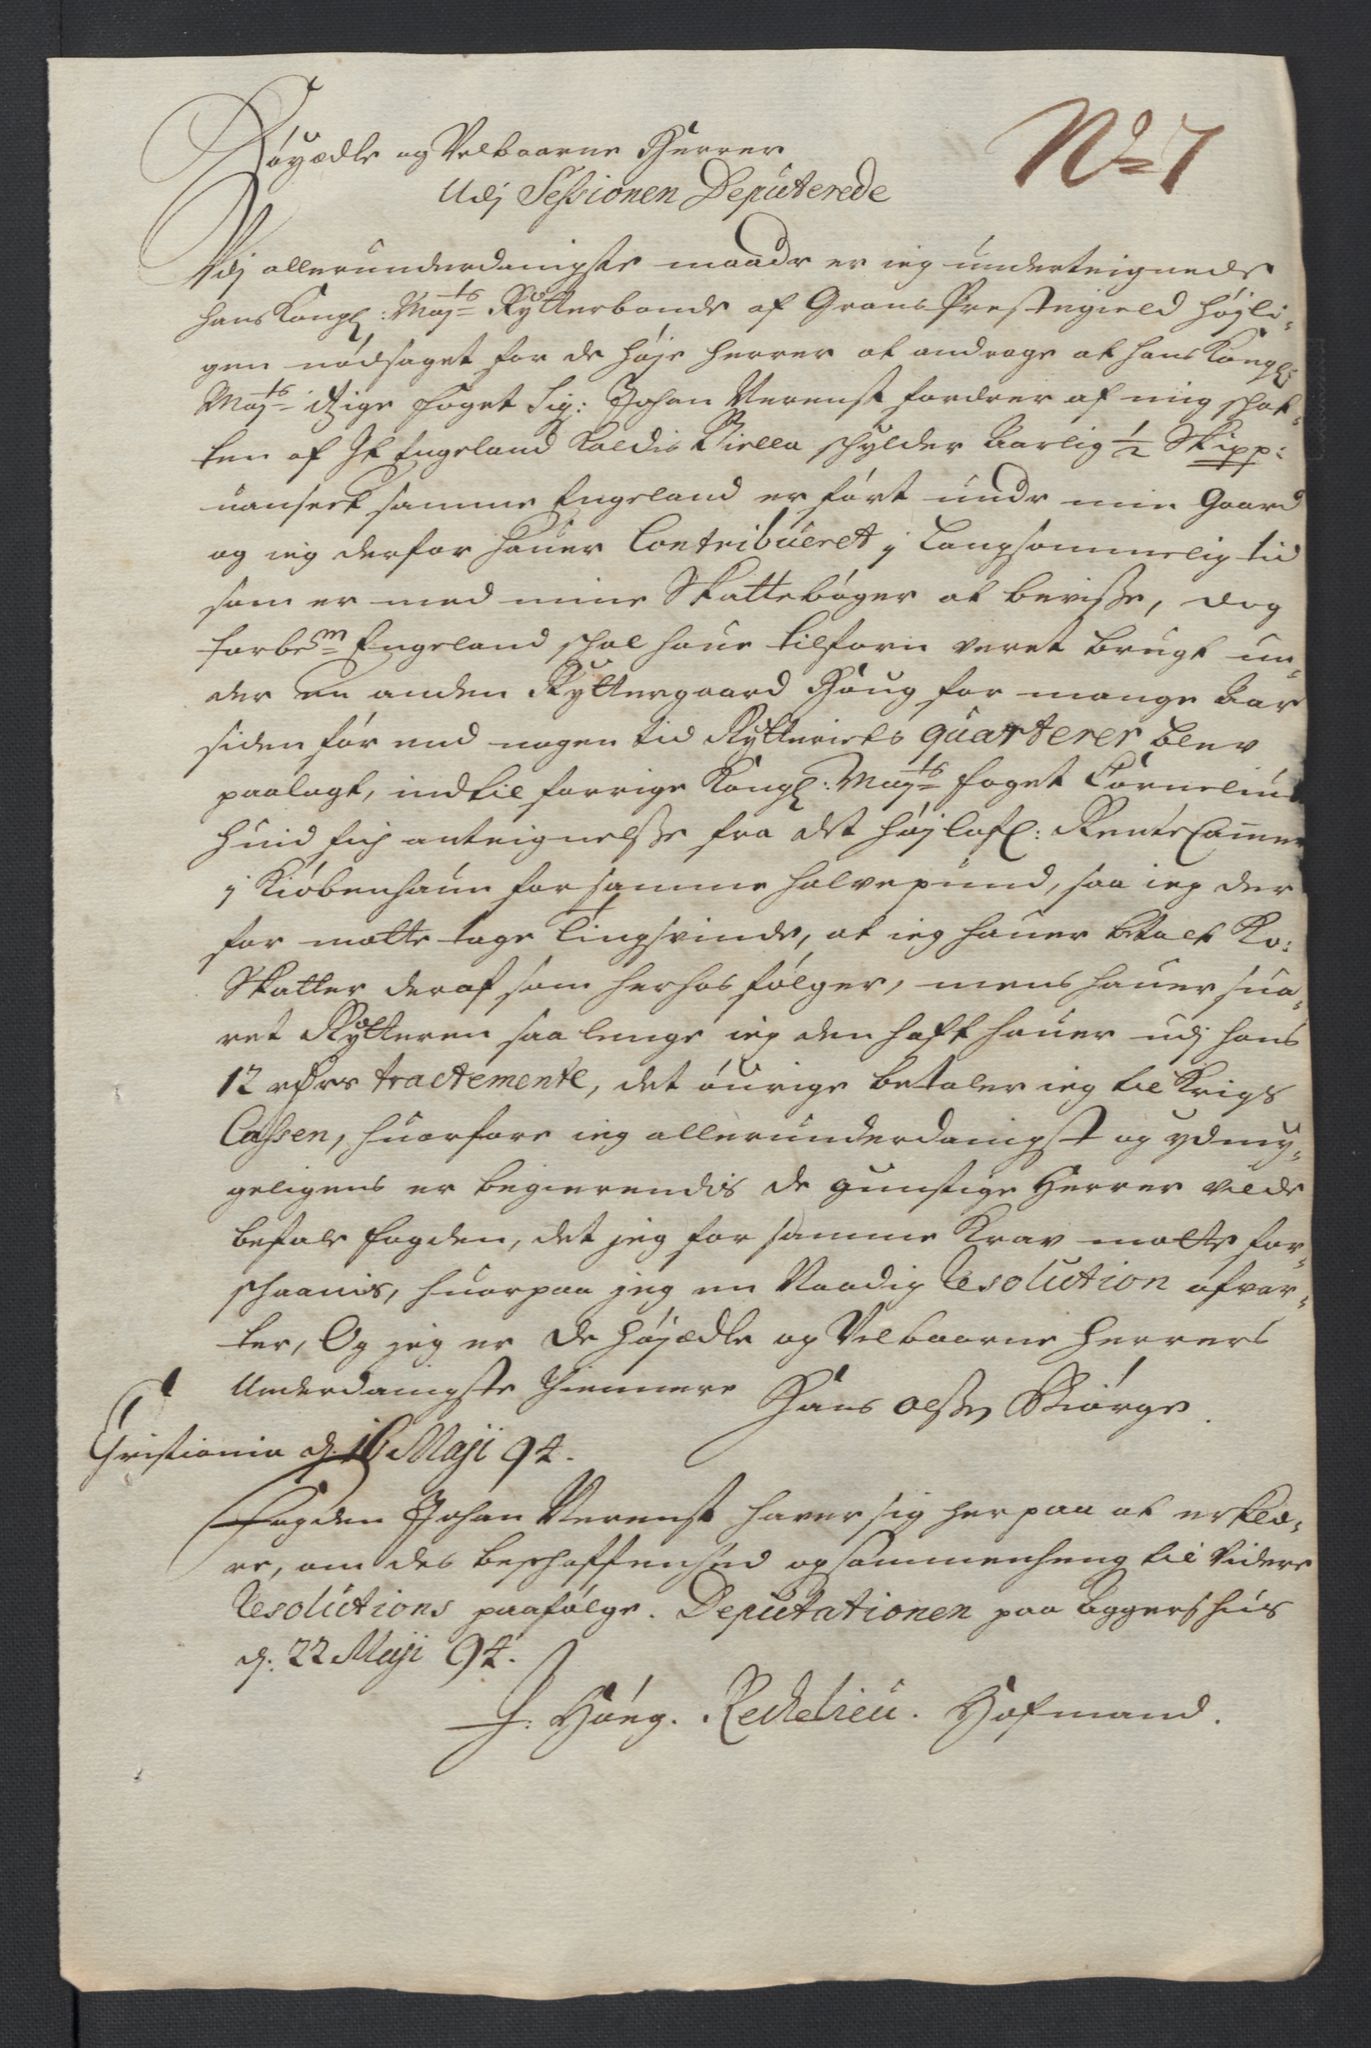 No 7
Höyædle og Velbaarne Herrer
Udj Sessionen Deputerede
Udj allerunderdanigste maade er ieg underteignede
hans Kongl: Mayts Rytterbonde af Grans Prestegield høyli-
gen nødsaget for de høje herrer at andrage at hans Kongl:
Mayts itzige foget Sig: Johan Verenst fordrer af mig schat-
ten af Jt Engeland Kaldis Kiella schylder Aarlig 1/2 Skipp:
uanseet samme Engeland er ført under min Gaard
og ieg derfor hauer Contribueret j Langsommelig tid
som er med mine Skattebøger at bevisse, dog
forbem Engeland schal haue tilforn veret brugt un-
der en anden Ryttergaard Houg for mange Aar
siden før end nogen tid Rytteriets quarterer blev
paalagt, indtil forrige Kongl: Mayts foget Cornelius
huid fich anteignelsse fra det høj lofl: Rente Camer
j Kiøbenhaun for samme halvepund, saa ieg der
for motte tage Tingsvinde, at ieg hauer betalt Ko:
Skatter deraf som herhos følger, mens hauer sua-
ret Rytteren saa lenge ieg den hafft hauer udj hans
12 rdrs tractemente, det øurige betaler ieg til Krigs
Cassen, huorfore ieg allerunderdanigst og ydmy-
geligens er begierendis de gunstige Herrer vilde
befale fogden, det jeg for samme Krav motte for-
schaanis, huorpaa jeg en Naadig Resolution afvar-
ter, Og jeg er De højædle og Velbaarne Herrers
Underdanigste thiennere Hans olssen Biørge.
Christiania d: 16 Maji 94.
Fogden Johan Verenst haver sig herpaa at erklæ-
re, om des beschaffenhed og sammenheng til videre
Resolutions paafølge. Deputationen paa Aggershuus
d: 22 Maji 94.
J: Høeg. Reichelieu. Hofmand.